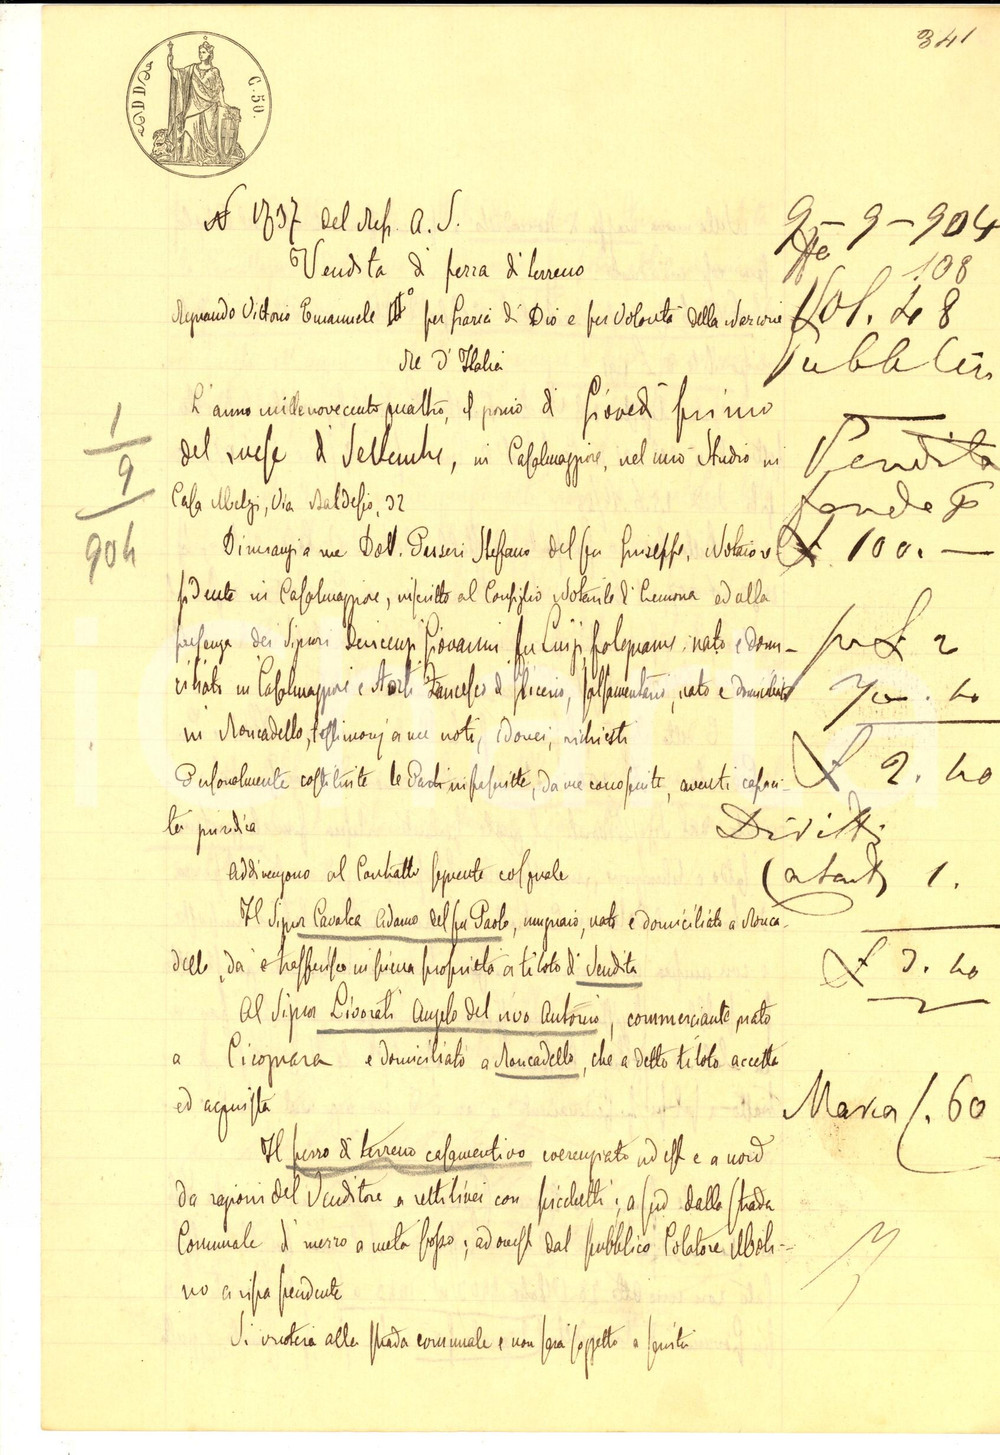 341
C. 50.
N 1737 del Rep. A. S.
Vendita di pezza di terreno
Regnando Vittorio Emanuele III° per grazia di Dio e per volontà della Nazione
Re d'Italia
L'anno millenovecento quattro, il giorno di Giovedì primo
del mese di Settembre, in Casalmaggiore, nel mio Studio in
Casa Melzi, Via Baldesio, 32
Dinnanzi a me Dott. Passeri Stefano del fu Giuseppe, Notaio re
sidente in Casalmaggiore, inscritto al Consiglio Notarile di Cremona ed alla
presenza dei Signori Giovanni fu Luigi, falegname, nato e domi-
ciliato in Casalmaggiore e Francesco di salsamentario, nato e domiciliato
in Roncadello, testimonj a me noti, idonei, richiesti
Personalmente costituite le Parti infrascritte, da me conosciute, aventi capaci-
tà giuridica
Addivengono al Contratto seguente col quale
Il Signor Cavalca Adamo del fu Paolo, mugnaio, nato e domiciliato a Ronca-
dello, dà e trasferisce in piena proprietà a titolo di Vendita
Al Signor Livorati Angelo del vivo Antonio, commerciante, nato
a Cicognara e domiciliato a Roncadello, che a detto titolo accetta
ed acquista
Il pezzo di terreno casamentivo coerenziato ad est e a nord
da ragioni del Venditore a rettilinei con picchetti; a sud dalla strada
Comunale di mezzo a metà fosso; ad ovest dal pubblico Colatore Moli-
no a ripa pendente
Si uscirà alla strada comunale e non sarà soggetto a servitù
1
9
904
9-9-904
108
Vol. 48
Pubblici
Vendita
£ 100. —
£ 2
40
£ 2. 40
Diritti
Catasto 1.
£ 3. 40
Marca £. 60